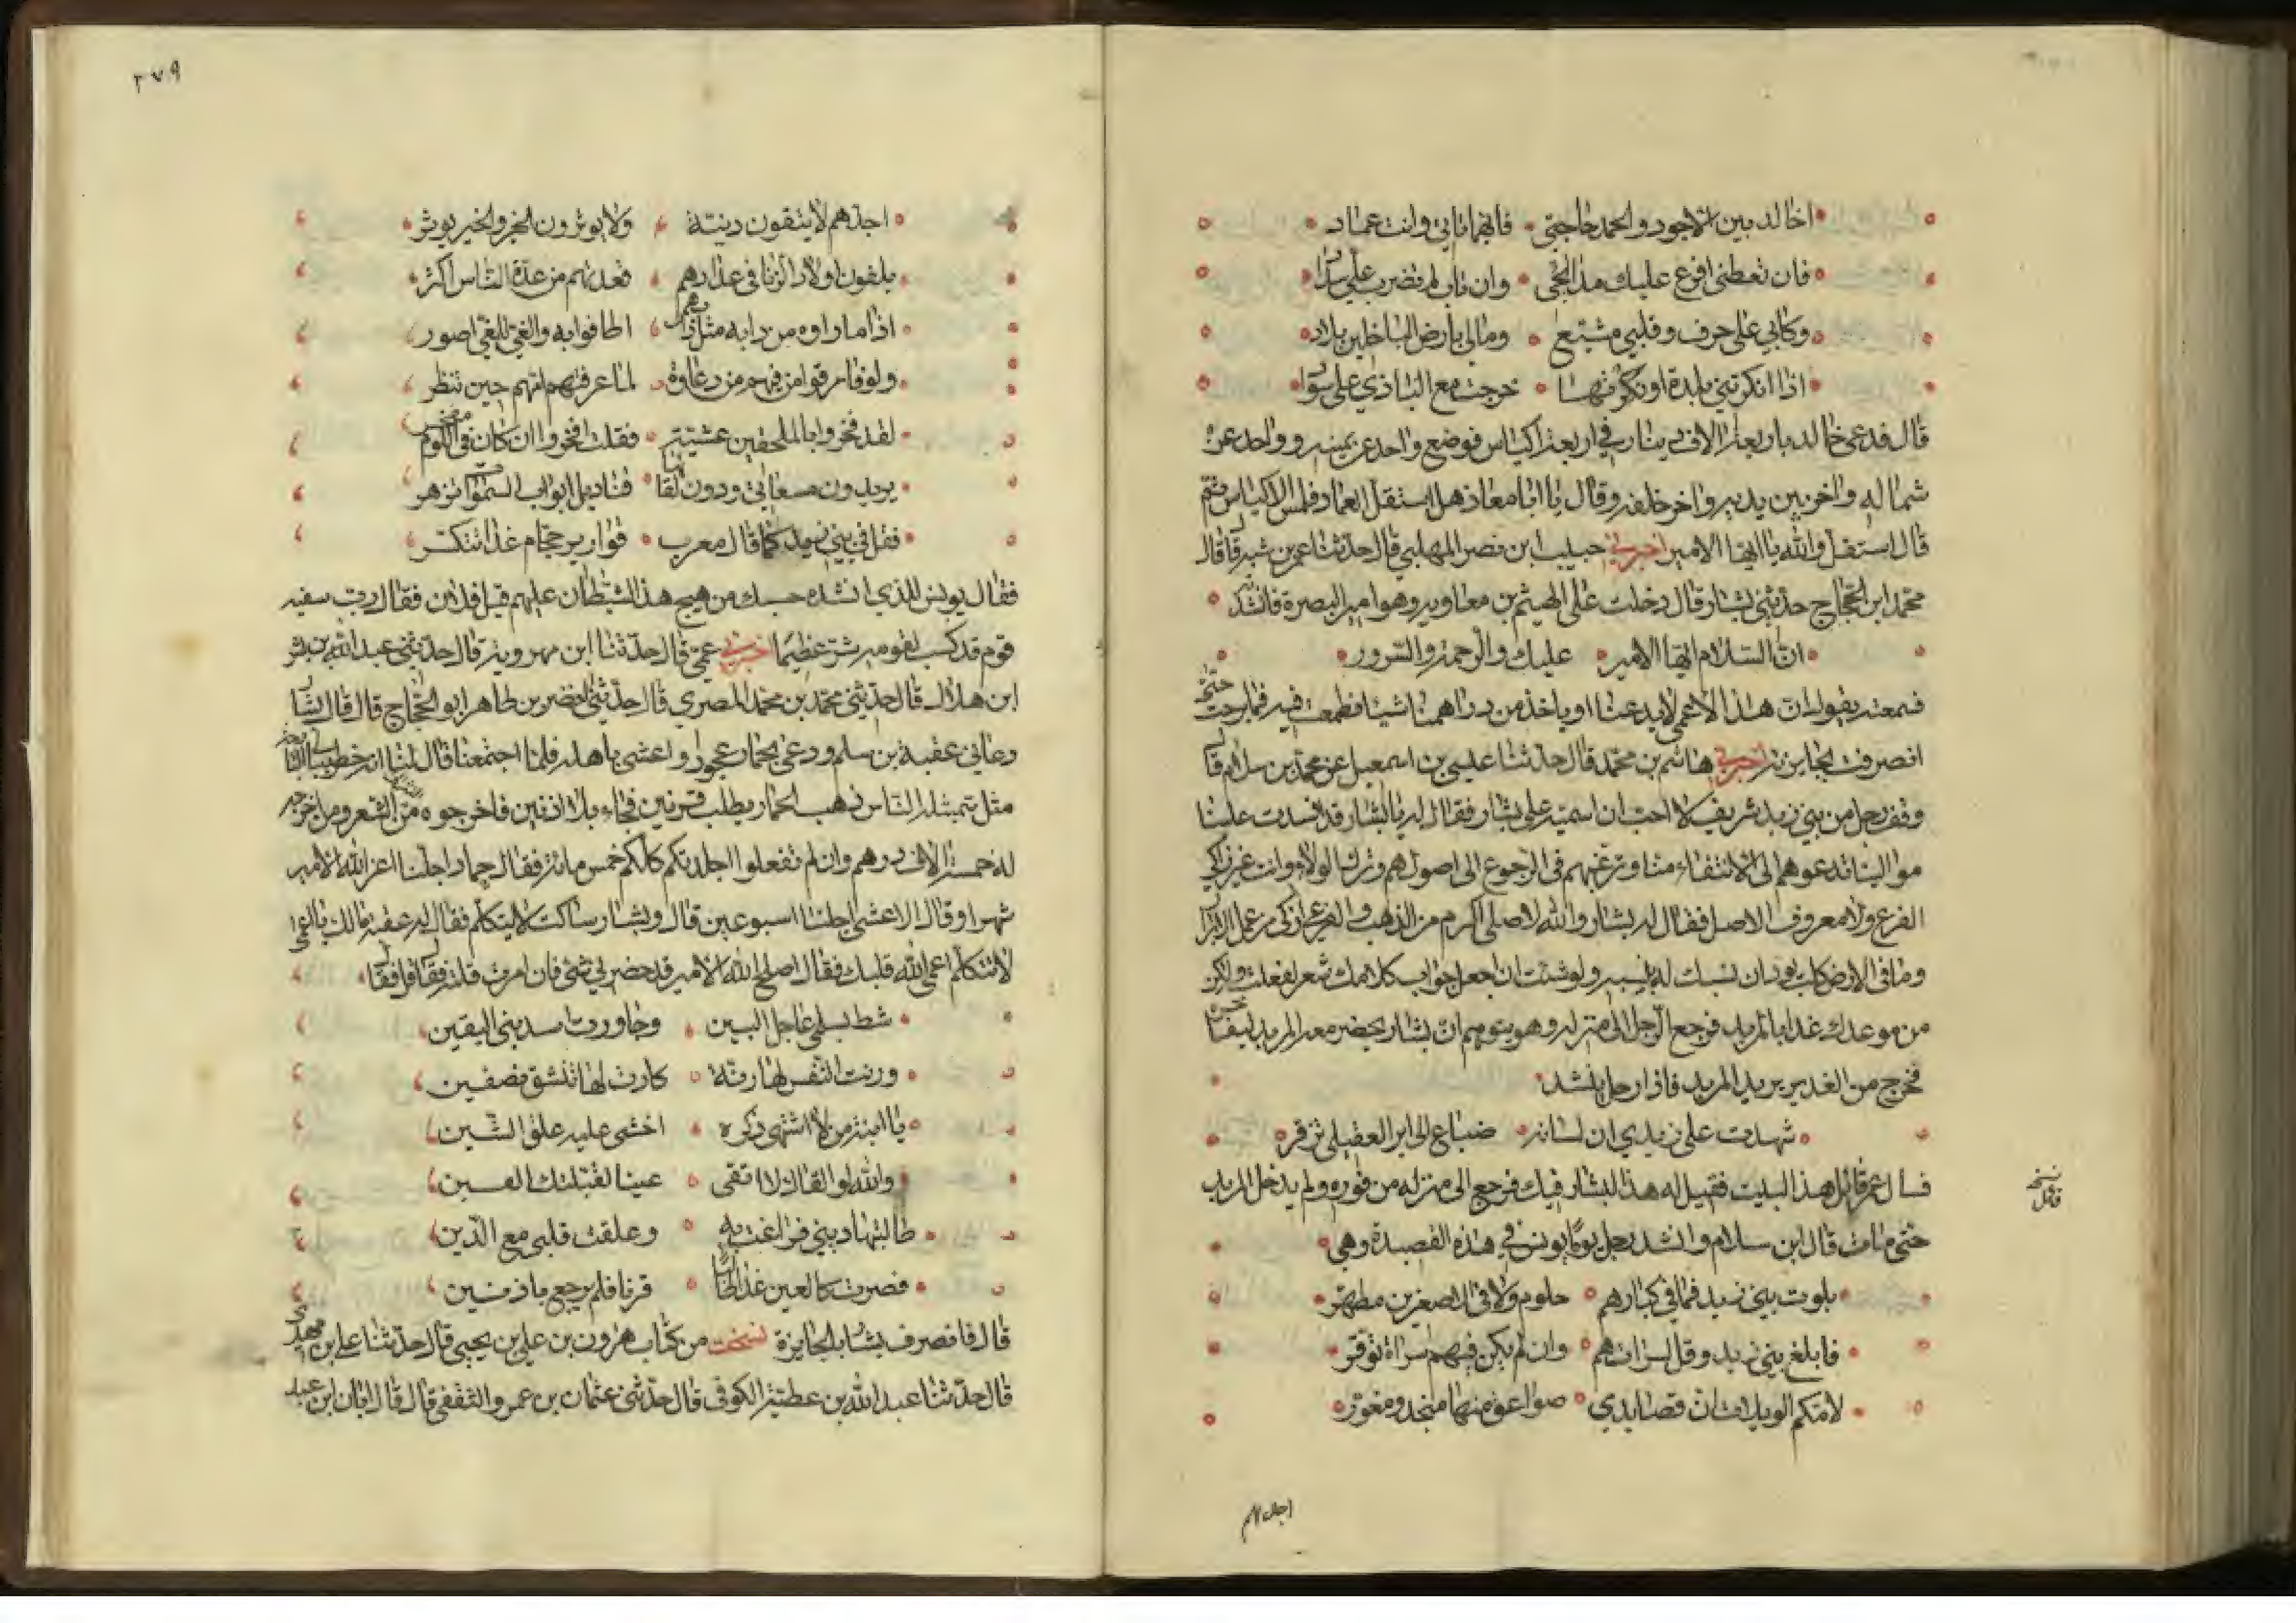 اخالد بين الاجود والحمد حاجتي فايهما تاتي وانت عماد
فان تعطني افرغ عليك مدائحي وان تاب لم تضرب علي سداد
ركابي على حرف وقلبي مشيع ومالي بارض الباخلين بلاد
اذا انكرتني بلدة او نكرتها خرجت مع البازي علي سواد
قال فدعى خالد باربعة الاف دينار في اربعة اكياس فوضع واحد عن يمينه وواحد عن
شماله واخر بين يديه واخر خلفه وقال يا ابا معاذ هل استقل العماد فلمس الاكياس ثم
قال استقل والله يا ايها الامير اخبرني حبيب ابن نصر المهلبي قال حدثنا عمر بن شبة قال قال
محمد ابن الحجاج حدثني بشار قال دخلت على الهيثم بن معاوية وهو امير البصرة فانشدته
ان السلام ايها الامير عليك والرحمة والسرور
فسمعته يقول ان هذا الاعمى لا يدعنا او ياخذ من دراهمنا شيئا فطمعت فيه فما برحت حتى
انصرفت بجايزته اخبرني هاشم بن محمد قال حدثنا عيسى بن اسمعيل عن محمد بن سلام قال
وقف رجل من بني زيد شريف لا احب ان اسميه على بشار فقال له يا بشار قد افسدت علينا
موالينا تدعوهم الى الانتفاء منا وترغبهم في الرجوع الى اصولهم وترك الولاء وانت غير زاكي
الفرع ولا معروف الاصل فقال له بشار والله لاصلي اكرم من الذهب ولفرعي ازكى من عمل الابرار
وما في الارض كلب يود ان نسبك له بنسبه ولو شئت ان اجعل جواب كلامك شعر لفعلت ولكن
من موعدك غدا بالمربد فرجع الرجل الى منزله وهو يتوهم ان بشار يحضر معه المربد ليفاخره
فخرج من الغد يريد المربد فاذا رجل ينشد
شهدت على زيدي ان لسانه ضباع الى اير العقيلي تزفر
فسال عمن قائل هذا البيت فقيل له هذا لبشار فيك فرجع الى منزله من فوره ولم يدخل المربد
نسخه قائل
حتى مات قال ابن سلام وانشد رجل يوما يونس في هذه القصيدة وهي
بلوت بني زيد فما في كبارهم حلوم ولا في الاصغرين مطهر
فابلغ بني زيد وقل لسراتهم وان لم يكن فيهم سراة توقر
لامكم الويلات ان قصايدي صواعق منها منجد ومغور
اجدهم
٢٧٩
اجدهم لا يتقون دنيئة ولا يوثرون الخير والخير يوثر
يلفون اولاد الزنا في عدادهم فعدتهم من عدة الناس اكثر
اذا ما راوه من دابه مثل دابهم اطافوا به والغي للغي اصور
ولو فارقوا من فيهم من دعارة لما عرفتهم امهم حين تنظر
لقد فخروا بالملحقين عشية فقلت افخروا ان كان في اللوم مفخر
يريدون مسعاتي ودون لقائها قناديل ابواب السموات تزهر
فقل في بني زيد كما قال معرب قوارير حجام غدا تتكسر
فقال يونس للذي انشده حسبك من هيج هذا الشيطان عليهم قيل فلان فقال رب سفيه
قوم قد كسب لقومه شر عظيما اخبرني عمي قال حدثنا ابن مهرويه قال حدثني عبد الله بن بشر
ابن هلال قال حدثني محمد بن محمد المصري قال حدثني نصر بن طاهر ابو الحجاج قال قال بشار
دعاني عقبة بن سلم ودعى بحماد عجرد واعشى باهله فلما اجتمعنا قال لنا انه خطر ببالي البارحة
مثل يتمثله الناس ذهب الحمار يطلب قرنين فجاء بلا اذنين فاخرجوه من الشعر ومن اخرجه
له خمسة الاف درهم وان لم تفعلوا اجلدتكم كلكم خمس مائة فقال حماد اجلنا اعز الله الامير
شهرا وقال الاعشى اجلنا اسبوعين قال وبشار ساكت لا يتكلم فقال له عقبة مالك يا اعمى
لا تتكلم اعمى الله قلبك فقال اصلح الله الامير قد حضرني شي فان امرت قلته فقال قل فقال
شط بسلمى عاجل البين وجاورت اسد بني القين
ورنت النفس لها رنة كادت لها تنشق نصفين
يا ابنة من لا اشتهي ذكره اخشى عليه علق الشين
والله لو القاك لا اتقي عينا لقبلتك الفين
طالبتها ديني فراغت به وعلقت قلبي مع الدين
فصرت كالعير غدا طالبا قرنا فلم يرجع باذنين
قال فانصرف بشار بالجايزة نسخت من كتاب هارون بن علي بن يحيى قال حدثنا علي ابن مهدي
قال حدثنا عبد الله بن عطية الكوفي قال حدثني عثمان بن عمرو الثقفي قال قال ابان ابن عبد